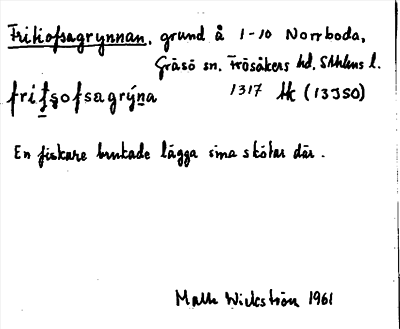 Fritiofsagrynnan, grund å 1-10 Norrboda,
Gräsö sn, Frösåkers hd, Sthlms l.
friţşofsagrýna 1317 Hk (13J50)
En fiskare brukade lägga sina skötar där.
Mats Wickström 1961